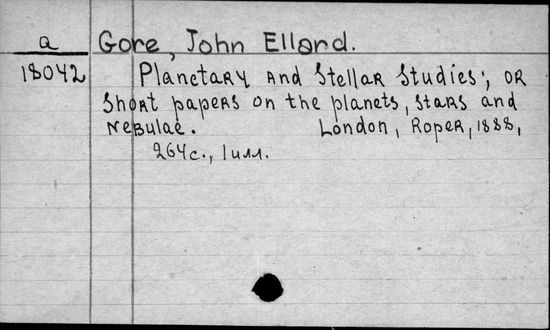 a Gore, John Ellard.
18042 Planetary and Stellar Studies; or
short papers on the planets, stars and
nebulae. London, Roper, 1888,
264с., 1 илл.